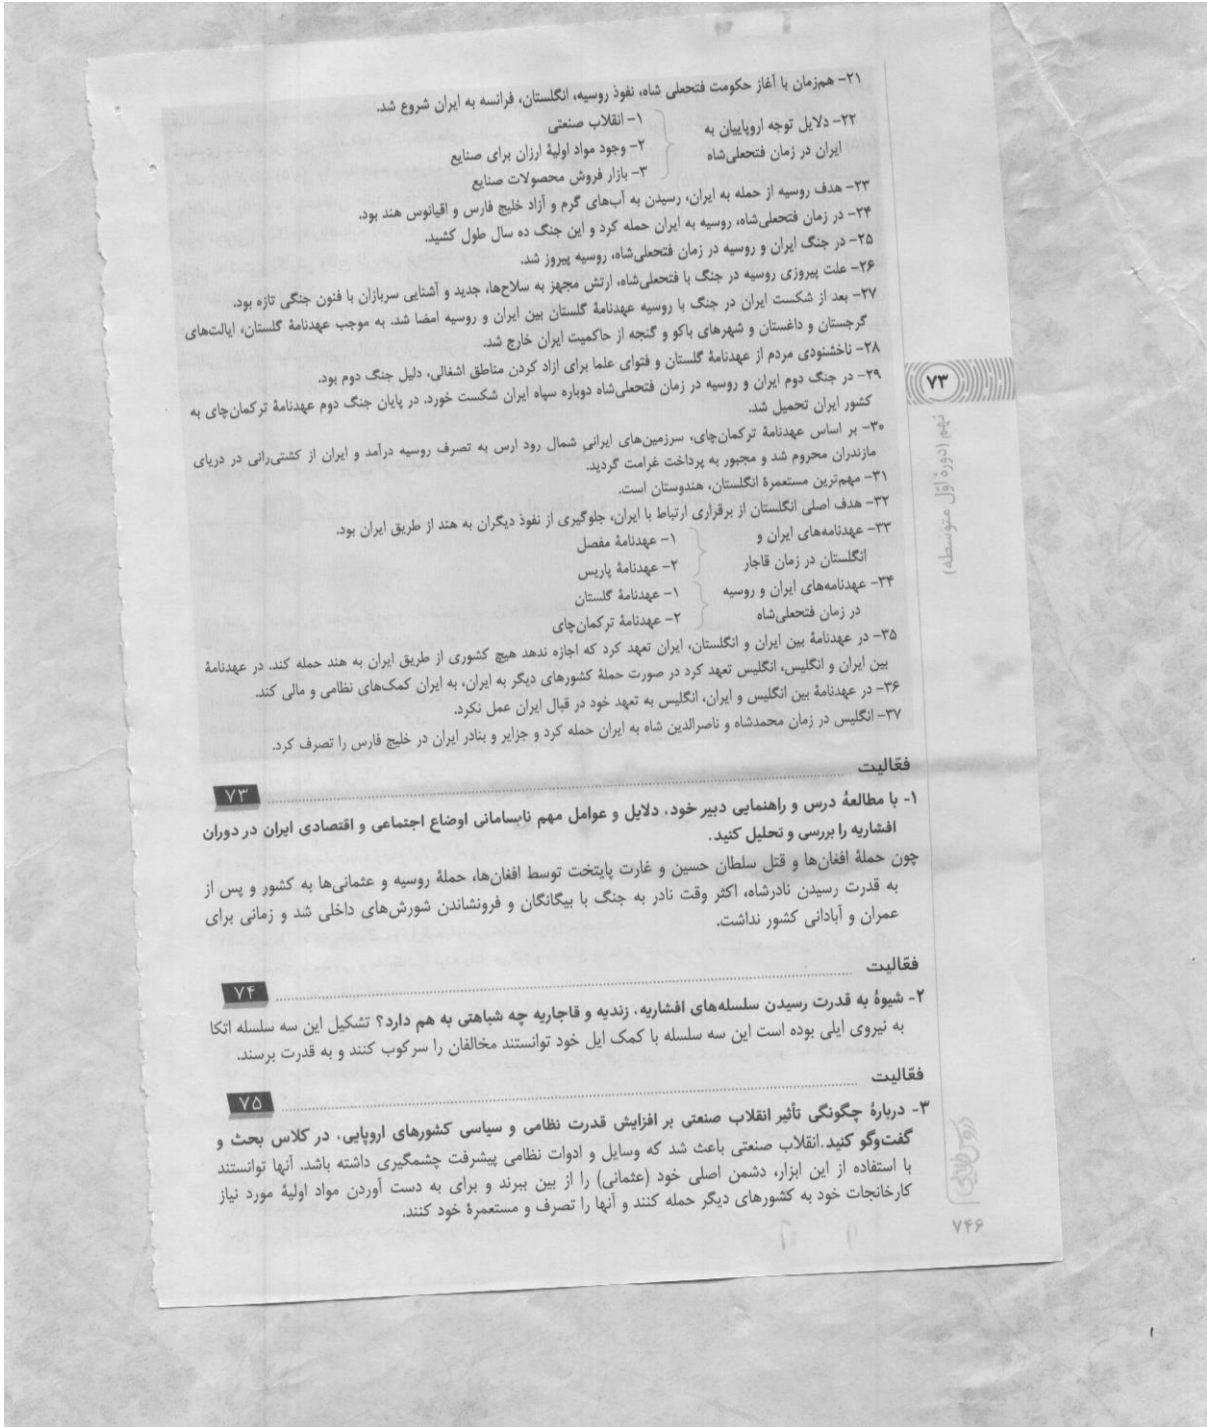 ۲۱- هم‌زمان با آغاز حکومت فتحعلی شاه، نفوذ روسیه، انگلستان، فرانسه به ایران شروع شد.
۲۲- دلایل توجه اروپاییان به
ایران در زمان فتحعلی‌شاه
۱- انقلاب صنعتی
۲- وجود مواد اولیۀ ارزان برای صنایع
۳- بازار فروش محصولات صنایع
۲۳- هدف روسیه از حمله به ایران، رسیدن به آب‌های گرم و آزاد خلیج فارس و اقیانوس هند بود.
۲۴- در زمان فتحعلی‌شاه، روسیه به ایران حمله کرد و این جنگ ده سال طول کشید.
۲۵- در جنگ ایران و روسیه در زمان فتحعلی‌شاه، روسیه پیروز شد.
۲۶- علت پیروزی روسیه در جنگ با فتحعلی‌شاه، ارتش مجهز به سلاح‌ها، جدید و آشنایی سربازان با فنون جنگی تازه بود.
۲۷- بعد از شکست ایران در جنگ با روسیه عهدنامۀ گلستان بین ایران و روسیه امضا شد، به موجب عهدنامۀ گلستان، ایالت‌های
گرجستان و داغستان و شهرهای باکو و گنجه از حاکمیت ایران خارج شد.
۲۸- ناخشنودی مردم از عهدنامۀ گلستان و فتوای علما برای ازاد کردن مناطق اشغالی، دلیل جنگ دوم بود.
۲۹- در جنگ دوم ایران و روسیه در زمان فتحعلی‌شاه دوباره سپاه ایران شکست خورد. در پایان جنگ دوم عهدنامۀ ترکمان‌چای به
کشور ایران تحمیل شد.
۳۰- بر اساس عهدنامۀ ترکمان‌چای، سرزمین‌های ایرانیِ شمال رود ارس به تصرف روسیه درآمد و ایران از کشتی‌رانی در دریای
مازندران محروم شد و مجبور به پرداخت غرامت گردید.
۳۱- مهم‌ترین مستعمرۀ انگلستان، هندوستان است.
۳۲- هدف اصلی انگلستان از برقراری ارتباط با ایران، جلوگیری از نفوذ دیگران به هند از طریق ایران بود.
۳۳- عهدنامه‌های ایران و
انگلستان در زمان قاجار
۱- عهدنامۀ مفصل
۲- عهدنامۀ پاریس
۳۴- عهدنامه‌های ایران و روسیه
در زمان فتحعلی‌شاه
۱- عهدنامۀ گلستان
۲- عهدنامۀ ترکمان‌چای
۳۵- در عهدنامۀ بین ایران و انگلستان، ایران تعهد کرد که اجازه ندهد هیچ کشوری از طریق ایران به هند حمله کند. در عهدنامۀ
بین ایران و انگلیس، انگلیس تعهد کرد در صورت حملۀ کشورهای دیگر به ایران، به ایران کمک‌های نظامی و مالی کند.
۳۶- در عهدنامۀ بین انگلیس و ایران، انگلیس به تعهد خود در قبال ایران عمل نکرد.
۳۷- انگلیس در زمان محمدشاه و ناصرالدین شاه به ایران حمله کرد و جزایر و بنادر ایران در خلیج فارس را تصرف کرد.
فعّالیت ۷۳
۱- با مطالعۀ درس و راهنمایی دبیر خود، دلایل و عوامل مهم نابسامانی اوضاع اجتماعی و اقتصادی ایران در دوران
افشاریه را بررسی و تحلیل کنید.
چون حملۀ افغان‌ها و قتل سلطان حسین و غارت پایتخت توسط افغان‌ها، حملۀ روسیه و عثمانی‌ها به کشور و پس از
به قدرت رسیدن نادرشاه، اکثر وقت نادر به جنگ با بیگانگان و فرونشاندن شورش‌های داخلی شد و زمانی برای
عمران و آبادانی کشور نداشت.
فعّالیت ۷۴
۲- شیوۀ به قدرت رسیدن سلسله‌های افشاریه، زندیه و قاجاریه چه شباهتی به هم دارد؟ تشکیل این سه سلسله اتکا
به نیروی ایلی بوده است این سه سلسله با کمک ایل خود توانستند مخالفان را سرکوب کنند و به قدرت برسند.
فعّالیت ۷۵
۳- دربارۀ چگونگی تأثیر انقلاب صنعتی بر افزایش قدرت نظامی و سیاسی کشورهای اروپایی، در کلاس بحث و
گفت‌وگو کنید. انقلاب صنعتی باعث شد که وسایل و ادوات نظامی پیشرفت چشمگیری داشته باشد. آنها توانستند
با استفاده از این ابزار، دشمن اصلی خود (عثمانی) را از بین ببرند و برای به دست آوردن مواد اولیۀ مورد نیاز
کارخانجات خود به کشورهای دیگر حمله کنند و آنها را تصرف و مستعمرۀ خود کنند.
۷۳
نهم (دورۀ اوّل متوسطه)
۷۴۶